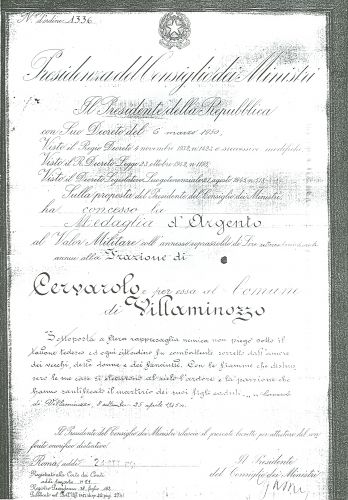 N. d'ordine 1336
Presidenza del Consiglio dei Ministri
Il Presidente della Repubblica
con Suo Decreto del 6 marzo 1950,
Visto il Regio Decreto 4 novembre 1932, n. 1423 e successive
Visto il R. Decreto Legge 23 ottobre 1942, n. 1195
Visto il Decreto Legislativo Luogotenenziale 21 agosto 1945, n. 518
Sulla proposta del Presidente del Consiglio dei Ministri
ha concesso la
Medaglia d'Argento
al Valor Militare coll'annesso soprassoldo di Lire
annue alla Frazione di
Cervarolo e per essa al Comune
di Villaminozzo
Sottoposta a fiera rappresaglia nemica non piegò sotto il
tallone tedesco ed ogni cittadino fu combattente sorretto dall'amore
dei vecchi, delle donne e dei fanciulli. Con le fiamme che distrus-
sero le sue case si elevarono al cielo l'ardore e la passione che
hanno santificato il martirio dei suoi figli caduti. Comune
di Villaminozzo, 8 settembre - 25 aprile 1945.
Il Presidente del Consiglio dei Ministri rilascia il presente brevetto per attestare del con-
ferito onorifico distintivo.
Roma, addì
Registrato alla Corte dei Conti
Il Presidente
del Consiglio dei Ministri